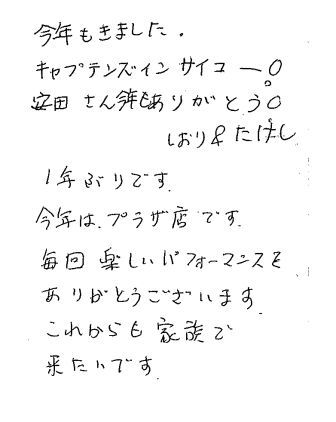 今年もきました.
キャプテンズイン サイコー!
安田 さん今年もありがとう!
しおり&たけし
1年ぶりです.
今年は、プラザ店です.
毎回 楽しいパフォーマンスを
ありがとうございます.
これからも 家族で
来たいです.